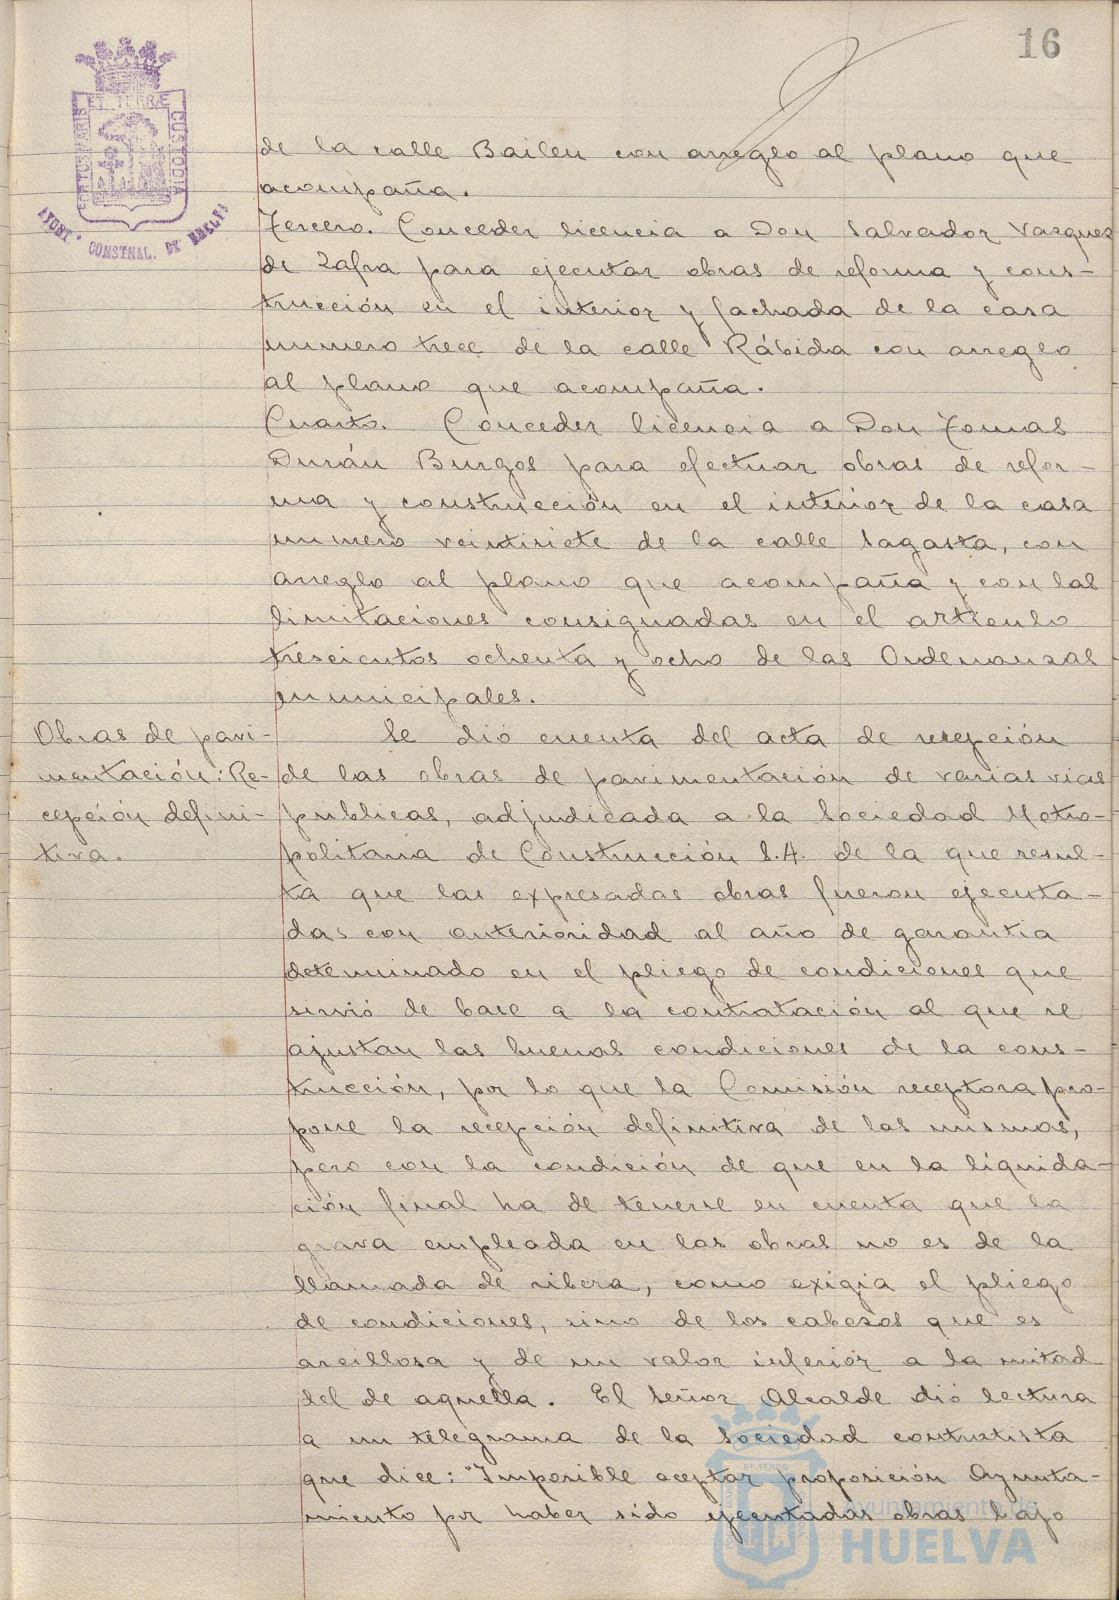 16
PORTUS MARIS ET TERRÆ CUSTODIA
AYUNT. CONSTNAL. DE HUELVA
de la calle Bailen con arreglo al plano que
acompaña.
Tercero. Conceder licencia a Don Salvador Vazquez
de Zafra para ejecutar obras de reforma y cons-
trucción en el interior y fachada de la casa
numero trece de la calle Rábida con arreglo
al plano que acompaña.
Cuarto. Conceder licencia a Don Tomas
Durán Burgos para efectuar obras de refor-
ma y construcción en el interior de la casa
numero veintisiete de la calle Sagasta, con
arreglo al plano que acompaña y con las
limitaciones consignadas en el articulo
trescientos ochenta y ocho de las Ordenanzas
municipales.
Obras de pavi-
mentación: Re-
cepción defini-
tiva.
Se dió cuenta del acta de recepción
de las obras de pavimentación de varias vias
publicas, adjudicada a la Sociedad Metro-
politana de Construcción S.A. de la que resul-
ta que las expresadas obras fueron ejecuta-
das con anterioridad al año de garantia
determinado en el pliego de condiciones que
sirvió de base a la contratación al que se
ajustan las buenas condiciones de la cons-
trucción, por lo que la Comisión receptora pro-
pone la recepción definitiva de las mismas,
pero con la condición de que en la líquida-
ción final ha de tenerse en cuenta que la
grava empleada en las obras no es de la
llamada de ribera, como exigia el pliego
de condiciones, sino de los cabezos que es
arcillosa y de un valor inferior a la mitad
del de aquella. El Señor Alcalde dió lectura
a un telegrama de la Sociedad contratista
que dice: "Imposible aceptar proposición Ayunta-
miento por haber sido ejecutadas obras bajo
Ayuntamiento de
HUELVA